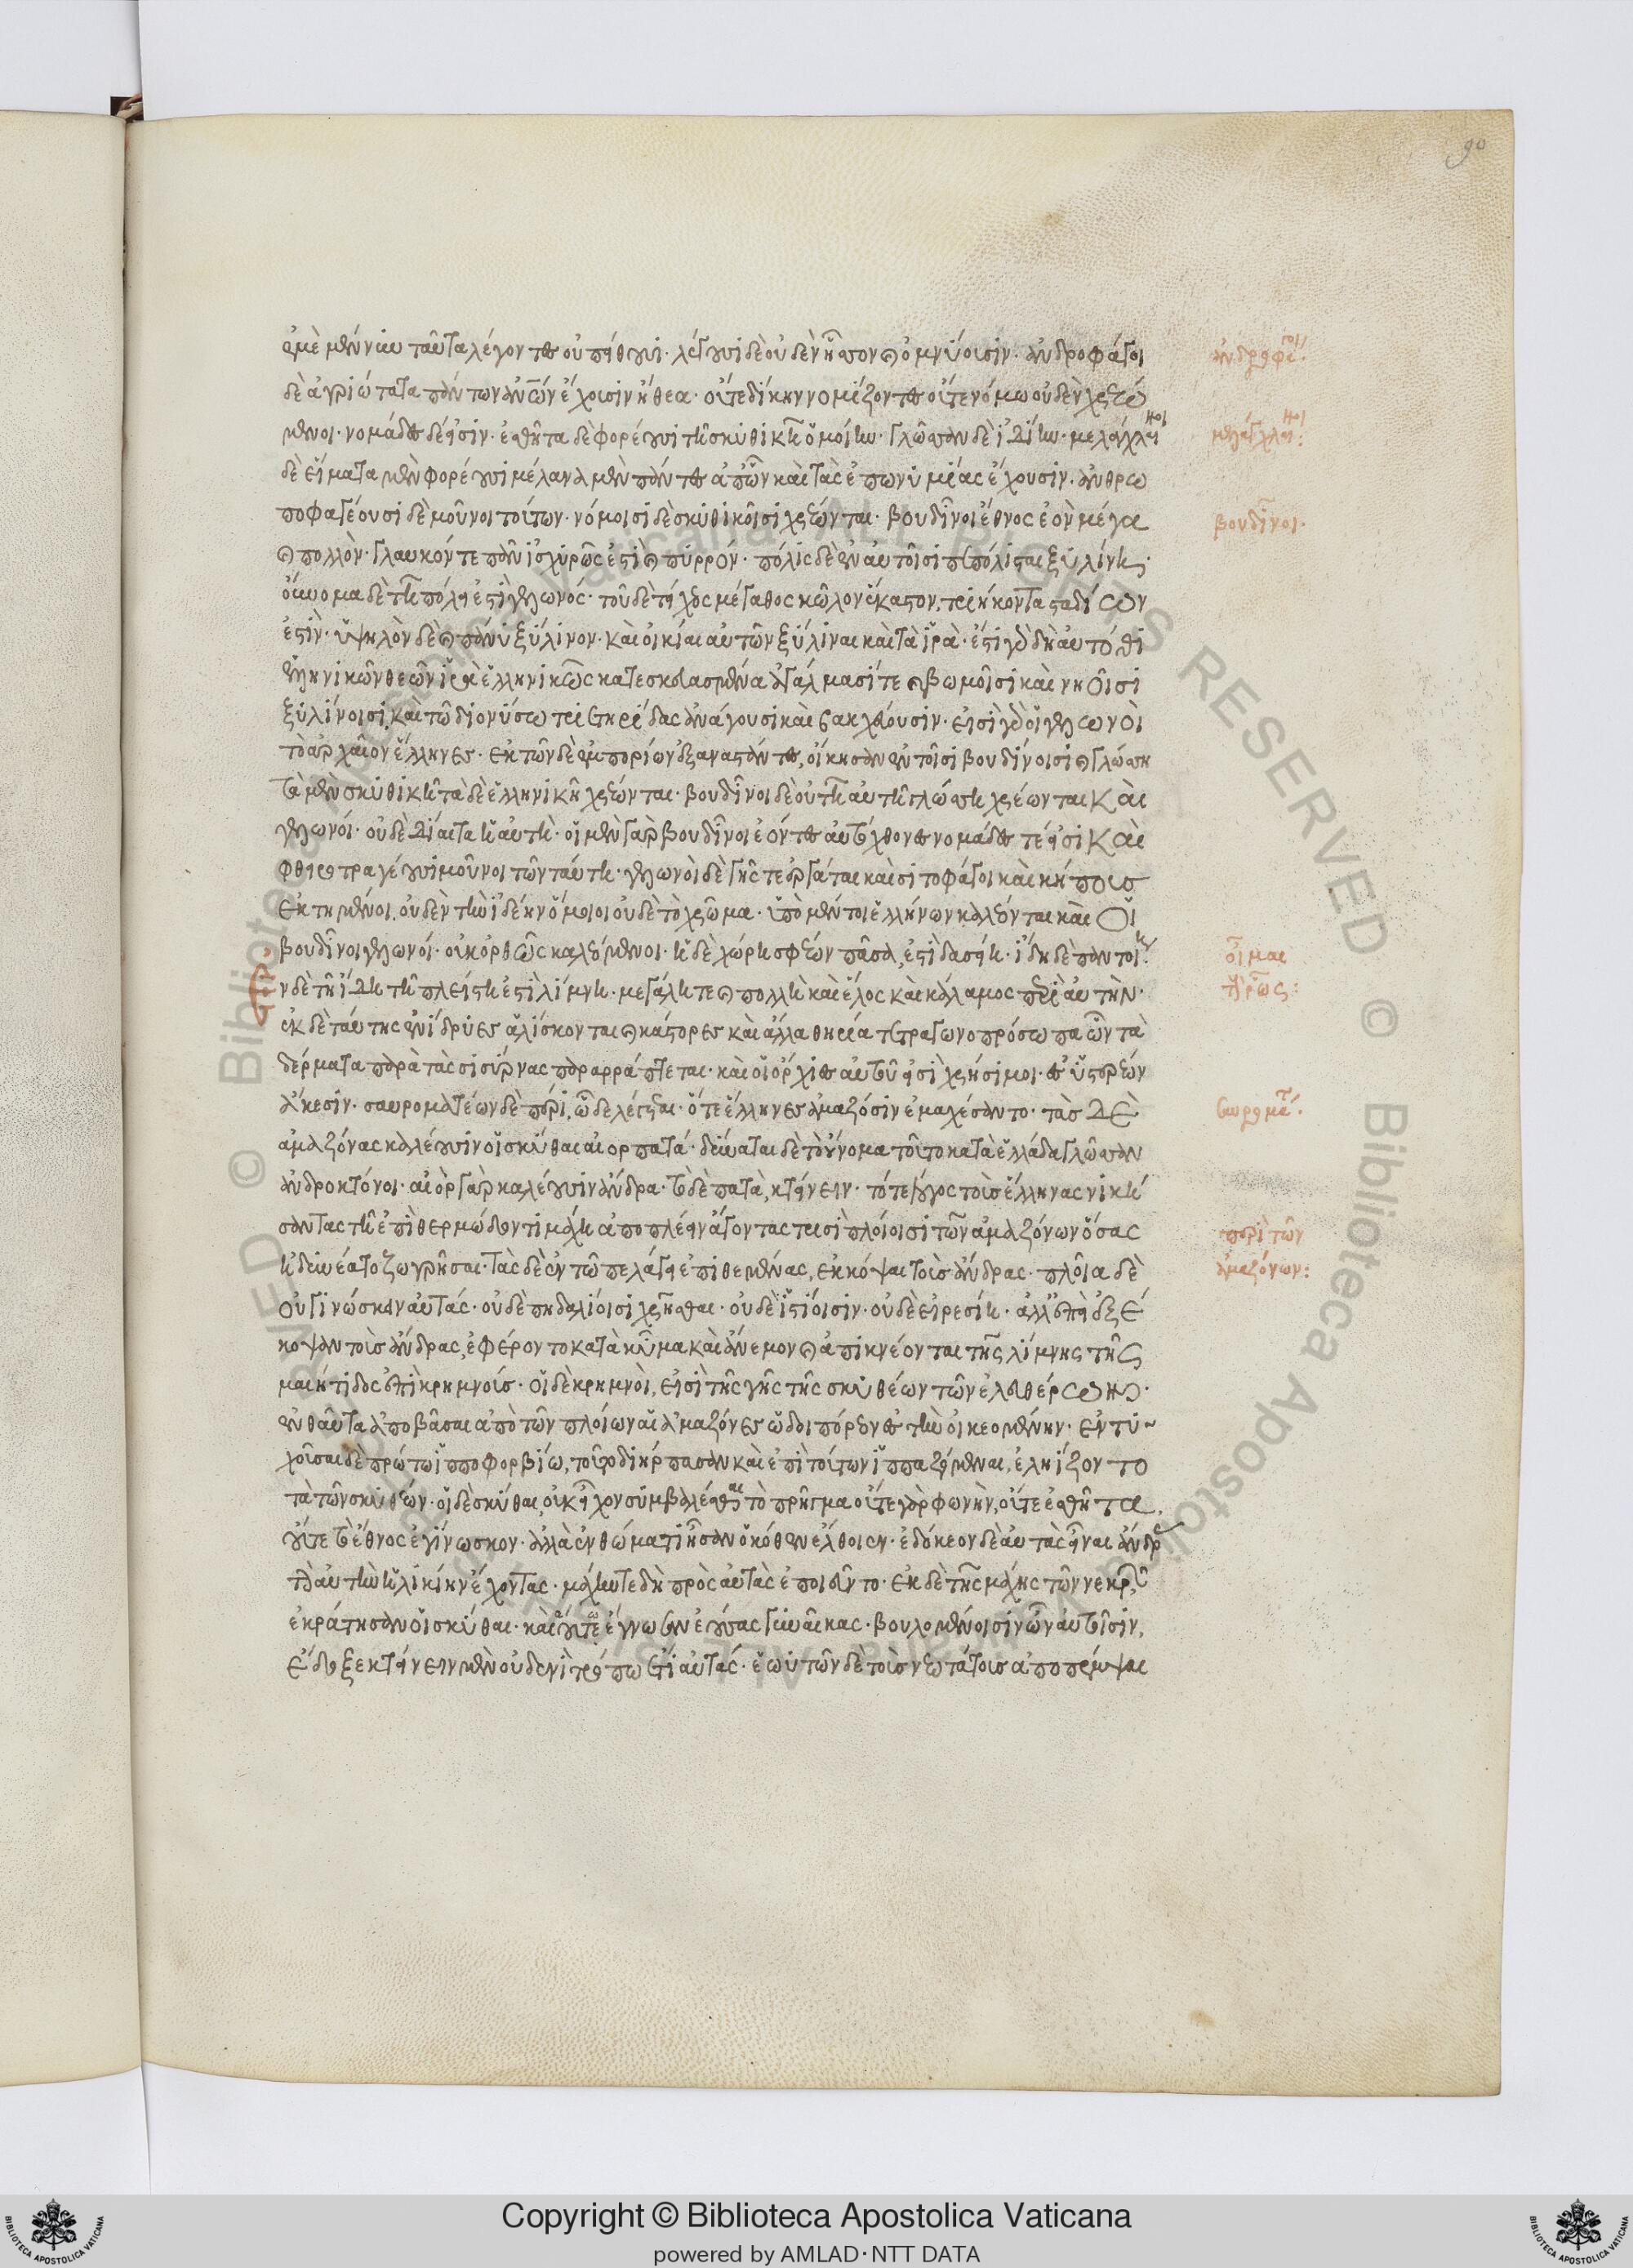 90
ἐμὲ μέν νυν ταῦτα λέγοντες οὐ πείθουσι· λέγουσι δὲ οὐδὲν ἧσσον καὶ ὀμνύουσιν· ἀνδροφάγοι
δὲ ἀγριώτατα πάντων ἀνθρώπων ἔχουσιν ἤθεα· οὔτε δίκην νομίζοντες οὔτε νόμω οὐδὲν χρεώ
μενοι· νομάδες δέ εἰσιν· ἐσθῆτα δὲ φορέουσι τῆ σκυθικῆ ὁμοίην· γλῶσσαν δὲ ἰδίην· μελάγχλαινοι
δὲ εἵματα μὲν φορέουσι μέλανα μὲν πάντες ἀπ' ὧν καὶ τὰς ἐπωνυμίας ἔχουσιν· ἀνθρω
ποφαγέουσι δὲ μοῦνοι τούτων· νόμοισι δὲ σκυθικοῖσι χρέωνται· βουδῖνοι ἔθνος ἐὸν μέγα
καὶ πολλὸν· γλαυκόν τε πᾶν ἰσχυρῶς ἐστὶ καὶ πυρρόν· πόλις δὲ ἐν αὐτοῖσι πεπόλισται ξυλίνη·
οὔνομα δὲ τῆ πόλει ἐστὶ γελωνός· τοῦ δὲ τείχεος μέγαθος κῶλον ἕκαστον, τριήκοντα σταδίων
ἐστίν· ὑψηλὸν δὲ καὶ πᾶν ξύλινον· καὶ οἰκίαι αὐτῶν ξύλιναι καὶ τὰ ἱρὰ· ἔστι γὰρ δὴ αὐτόθι
ἑλληνικῶν θεῶν ἱρὰ ἑλληνικῶς κατεσκευασμένα ἀγάλμασί τε καὶ βωμοῖσι καὶ νηοῖσι
ξυλίνοισι, καὶ τῶ διονύσω τριετηρίδας ἀνάγουσι καὶ βακχεύουσιν· εἰσὶ γὰρ οἱ γελωνοὶ
τὸ ἀρχαῖον ἕλληνες· ἐκ τῶν δὲ ἐμπορίων ἐξαναστάντες, οἴκησαν ἐν τοῖσι βουδίνοισι καὶ γλώσση
τὰ μὲν σκυθικῆ τὰ δὲ ἑλληνικῆ χρέωνται· βουδῖνοι δὲ οὐ τῆ αὐτῆ γλώσση χρέωνται καὶ
γελωνοί· οὐδὲ δίαιτα ἡ αὐτή· οἱ μὲν γὰρ βουδῖνοι ἐόντες αὐτόχθονες νομάδες τέ εἰσι καὶ
φθειροτραγέουσι μοῦνοι τῶν ταύτη· γελωνοὶ δὲ γῆς τε ἐργάται καὶ σιτοφάγοι καὶ κήπους
ἐκτημένοι, οὐδὲν τὴν ἰδέην ὅμοιοι οὐδὲ τὸ χρῶμα· ὑπὸ μέντοι ἑλλήνων καλέονται καὶ οἱ
βουδῖνοι γελωνοί· οὐκ ὀρθῶς καλεόμενοι· ἡ δὲ χώρη σφέων πᾶσα, ἐστὶ δασέη· ἴδησι παντοίησι
ἐν δὲ τῆ ἴδη τῆ πλείστη ἐστὶ λίμνη· μεγάλη τε καὶ πολλὴ καὶ ἕλος καὶ κάλαμος περὶ αὐτὴν·
ἐκ δὲ ταύτης ἐνύδριες ἁλίσκονται καὶ κάστορες καὶ ἄλλα θηρία τετραγωνοπρόσωπα ὧν τὰ
δέρματα παρὰ τὰς σισύρνας παραρράπτεται· καὶ οἱ ὄρχιες αὐτοῦ εἰσὶ χρήσιμοι· ἐς ὑστερέων
ἄκεσιν· σαυροματέων δὲ πέρι, ὧδε λέγεται· ὅτε ἕλληνες ἀμαζόσιν ἐμαχέσαντο· τὰς δὲ
ἀμαζόνας καλέουσιν οἱ σκύθαι αἰορπατά· δύναται δὲ τὸ οὔνομα τοῦτο κατὰ ἑλλάδα γλῶσσαν
ἀνδροκτόνοι· αἰὸρ γὰρ καλέουσιν ἄνδρα· τὸ δὲ πατὰ, κτείνειν· τότε λόγος τοὺς ἕλληνας νικη
σαντας τῆ ἐπὶ θερμώδοντι μάχη ἀποπλέειν ἄγοντας τρισὶ πλοίοισι τῶν ἀμαζόνων ὅσας
ἠδυνέατο ζωγρῆσαι· τὰς δὲ ἐν τῶ πελάγει ἐπιθεμένας, ἐκκόψαι τοὺς ἄνδρας· πλοῖα δὲ
οὐ γινώσκειν αὐτάς· οὐδὲ πηδαλίοισι χρῆσθαι· οὐδὲ ἱστίοισιν· οὐδὲ εἰρεσίη· ἀλλ' ἐπεὶ ἐξέ
κοψαν τοὺς ἄνδρας, ἐφέροντο κατὰ κῦμα καὶ ἄνεμον καὶ ἀπικνέονται τῆς λίμνης τῆς
μαιήτιδος ἐπὶ κρημνούς· οἱ δὲ κρημνοὶ, εἰσὶ τῆς γῆς τῆς σκυθέων τῶν ἐλευθέρων·
ἐνθαῦτα ἀποβᾶσαι ἀπὸ τῶν πλοίων αἱ ἀμαζόνες ὡδοιπόρεον ἐς τὴν οἰκεομένην· ἐντυ
χοῦσαι δὲ πρώτω ἱπποφορβίω, τοῦτο διήρπασαν καὶ ἐπὶ τούτων ἱππαζόμεναι, ἐληίζοντο
τὰ τῶν σκυθέων· οἱ δὲ σκύθαι, οὐκ εἶχον συμβαλέσθαι τὸ πρῆγμα οὔτε γὰρ φωνὴν, οὔτε ἐσθῆτα,
οὔτε τὸ ἔθνος ἐγίνωσκον· ἀλλὰ ἐν θώματι ἦσαν ὁκόθεν ἔλθοιεν· ἐδόκεον δὲ αὐτὰς εἶναι ἄνδρας
τὴν αὐτὴν ἡλικίην ἔχοντας· μάχην τε δὴ πρὸς αὐτὰς ἐποιεῦντο· ἐκ δὲ τῆς μάχης τῶν νεκρῶν
ἐκράτησαν οἱ σκύθαι· καὶ οὕτω ἔγνωσαν ἐούσας γυναῖκας· βουλομένοισιν ὦν αὐτοῖσιν,
ἔδοξε κτείνειν μὲν οὐδενὶ τρόπω ἔτι αὐτάς· ἑωυτῶν δὲ τοὺς νεωτάτους ἀποπέμψαι
ἀνδροφάγοι
μελάγχλαινοι:
βουδῖνοι·
οἶμαι
περὶ τῶν
ἀμαζόνων: